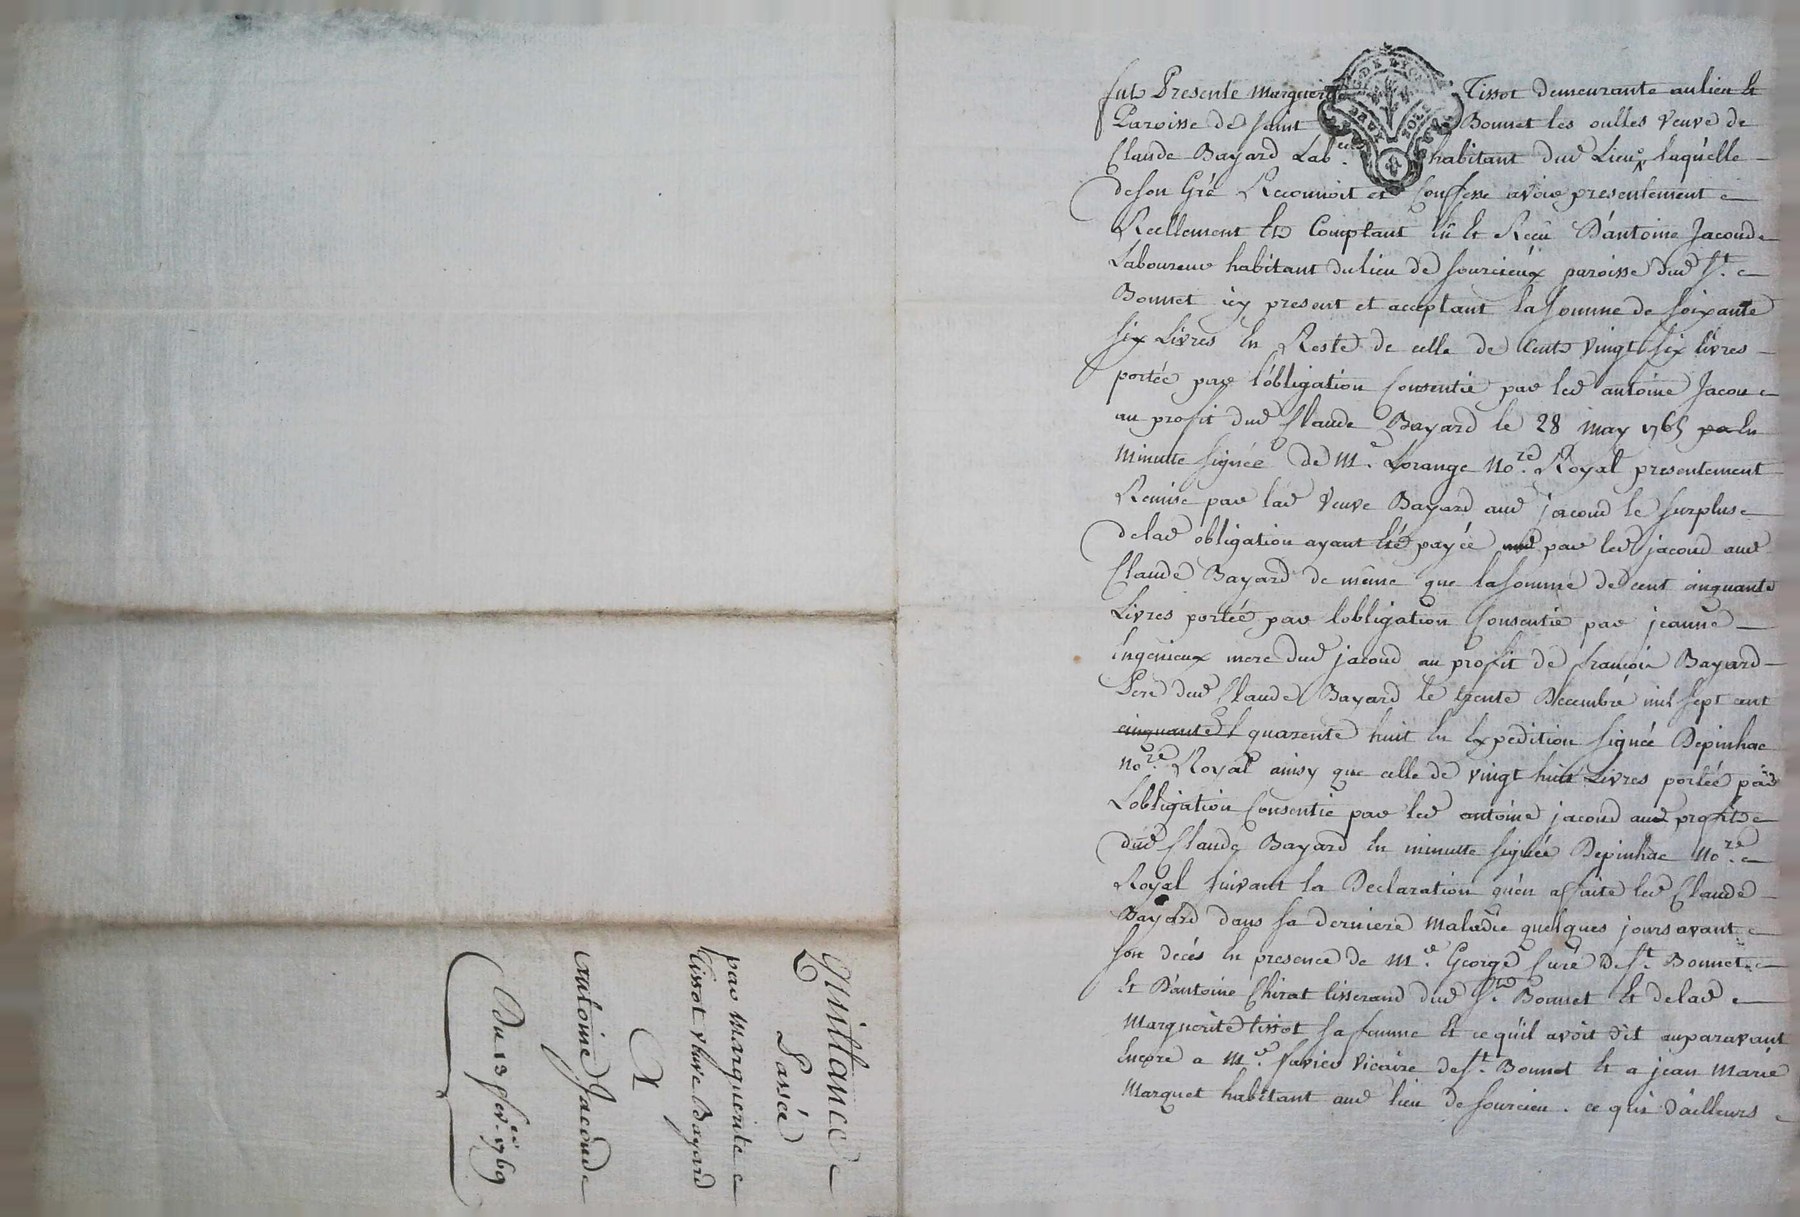 Quittance
Passée
par Marguerite
tissot veuve Bayard
A
Antoine Jacoud
Du 13 fev.er 1769
GE.DE LYON
DEUX SOLS
fut Presente Marguerite Tissot demeurante au lieu et
Paroisse de saint Bonnet les oulles veuve de
Claude Bayard Lab.eur habitant dud Lieu, laquelle
de son Gré Reconnoit et Confesse avoir presentement
Reellement et Comptant eü et Recu D'antoine Jacoud
Laboureur habitant du lieu de sourcieux paroisse dud S.t
Bonnet icy present et acceptant la somme de soixante
six Livres en Reste de celle de Cent vingt six livres
portée par l'obligation Consentie par led antoine Jacou
au profit dud Claude Bayard le 28 may 1765 pa en
minutte signée de M.e Lorange No.re Royal presentement
Remise par lad veuve Bayard aud jacoud le surplus
de lad obligation ayant eté payée par led jacoud aud
Claude Bayard de même que la somme de cent cinquante
Livres portée par l'obligation Consentie par jeanne
Ingenieux mere dud jacoud au profit de francois Bayard
Pere dud Claude Bayard le trente Decembre mil sept cent
cinquante quarente huit en Expedition signée Depinhac
No.re Royal ainsy que celle de vingt huit Livres portée par
L'obligation Consentie par led antoine jacoud aud profit
dud Claude Bayard en minutte signée Depinhac No.re
Royal suivant la Declaration qu'en a faite led Claude
Bayard dans sa derniere maladie quelques jours avant
son decés en presence de M.e George Curé de S.t Bonnet
et D'antoine Chirat tisserand dud S.t Bonnet et de lad
Marguerite tissot sa femme et ce qu'il avoit dit auparavant
Encore a M.e favier vicaire de S.t Bonnet et a jean Marie
Marquet habitant aud lieu de sourcieu. ce qui d'ailleurs